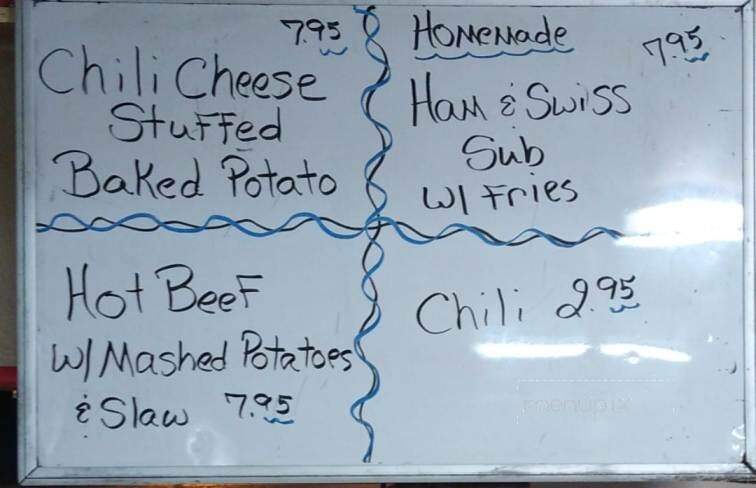 7.95
Chili Cheese
Stuffed
Baked Potato
Homemade
7.95
Ham & Swiss
Sub
W/ Fries
Hot Beef
W/ Mashed Potatoes
& Slaw 7.95
Chili 2.95
menupix